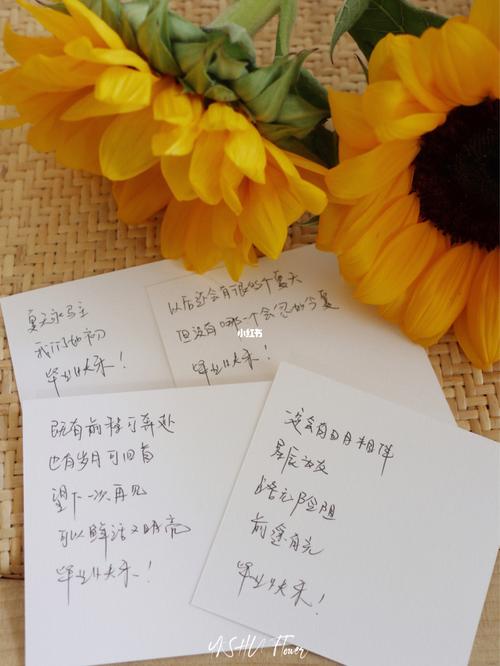 夏天永马主
我们如初
毕业快乐！
以后还会有很多个夏天
但没有哪一个会忽如今夏
毕业快乐！
小红书
既有前程可奔赴
也有岁月可回首
望下一次再见
可以鲜活又明亮
毕业快乐！
总会有日月相伴
星辰为友
路无险阻
前途有光
毕业快乐！
YISHU Flower